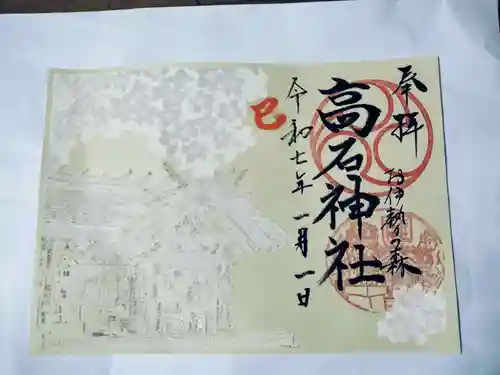 奉拝
お伊勢の森
高石神社
令和七年 一月 一日
巳